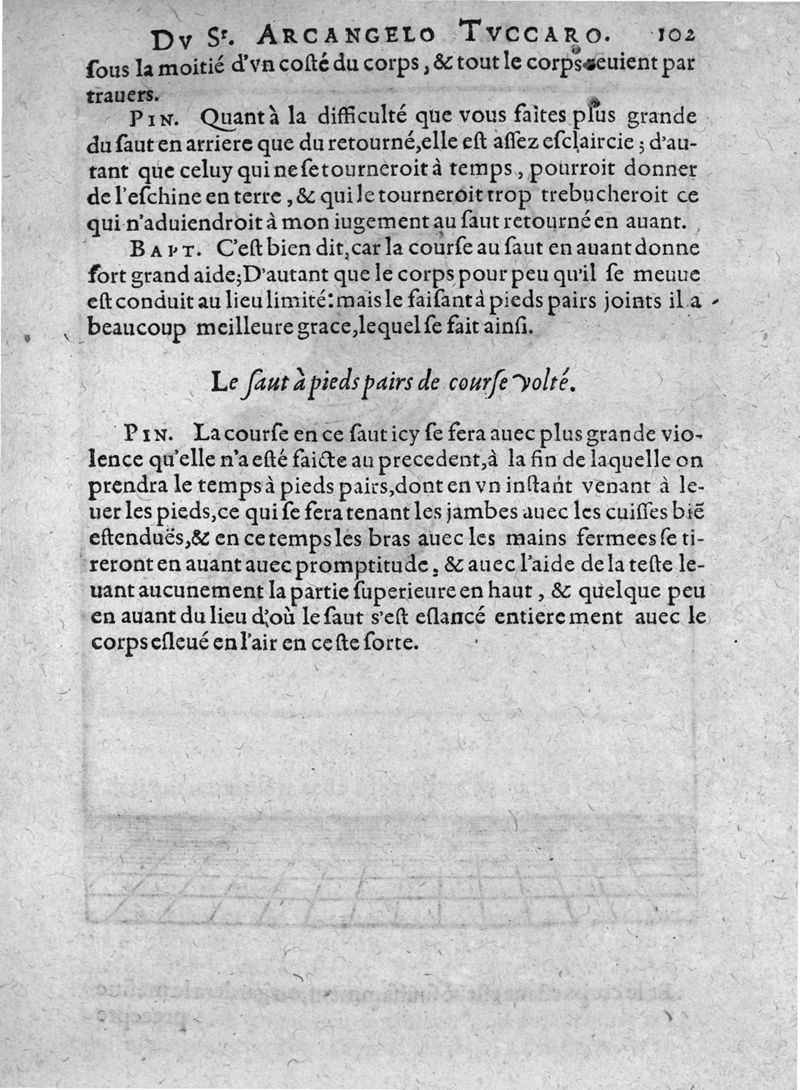 DV Sr. ARCANGELO TVCCARO. 102
ſous la moitié d'vn coſté du corps, & tout le corps euient par
trauers.
PIN. Quant à la difficulté que vous faites plus grande
du ſaut en arriere que du retourné, elle eſt aſſez eſclaircie; d'au-
tant que celuy qui ne ſe tourneroit à temps, pourroit donner
de l'eſchine en terre, & qui ſe tourneroit trop trebucheroit ce
qui n'aduiendroit à mon iugement au ſaut retourné en auant.
BAPT. C'eſt bien dit, car la courſe au ſaut en auant donne
fort grand aide; D'autant que le corps pour peu qu'il ſe meuue
eſt conduit au lieu limité: mais le faiſant à pieds pairs joints il a
beaucoup meilleure grace, lequel ſe fait ainſi.
Le ſaut à pieds pairs de courſe volté.
PIN. La courſe en ce ſaut icy ſe fera auec plus grande vio-
lence qu'elle n'a eſté faicte au precedent, à la fin de laquelle on
prendra le temps à pieds pairs, dont en vn inſtant venant à le-
uer les pieds, ce qui ſe fera tenant les jambes auec les cuiſſes biẽ
eſtenduës, & en ce temps les bras auec les mains fermees ſe ti-
reront en auant auec promptitude, & auec l'aide de la teſte le-
uant aucunement la partie ſuperieure en haut, & quelque peu
en auant du lieu d'où le ſaut s'eſt eſlancé entierement auec le
corps eſleué en l'air en ceſte ſorte.